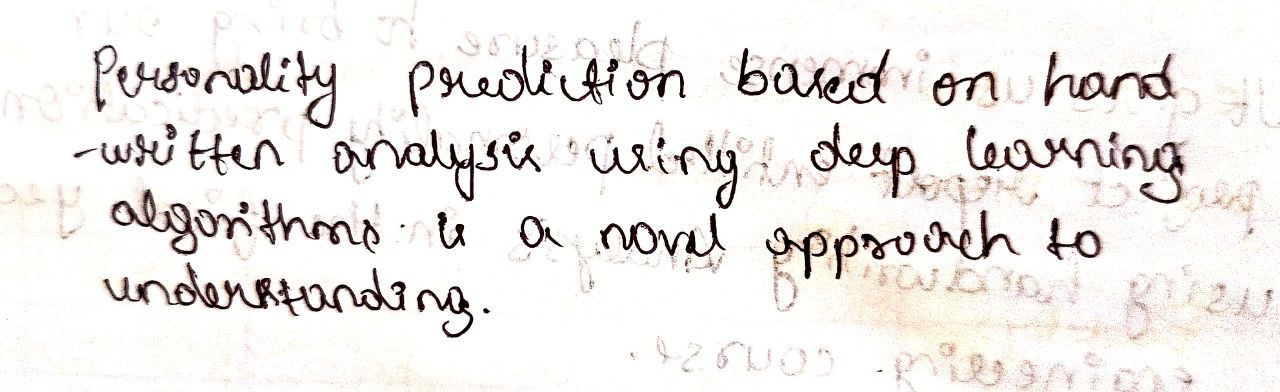 Personality prediction based on hand
-written analysis using deep learning
algorithms is a novel approach to
understanding.